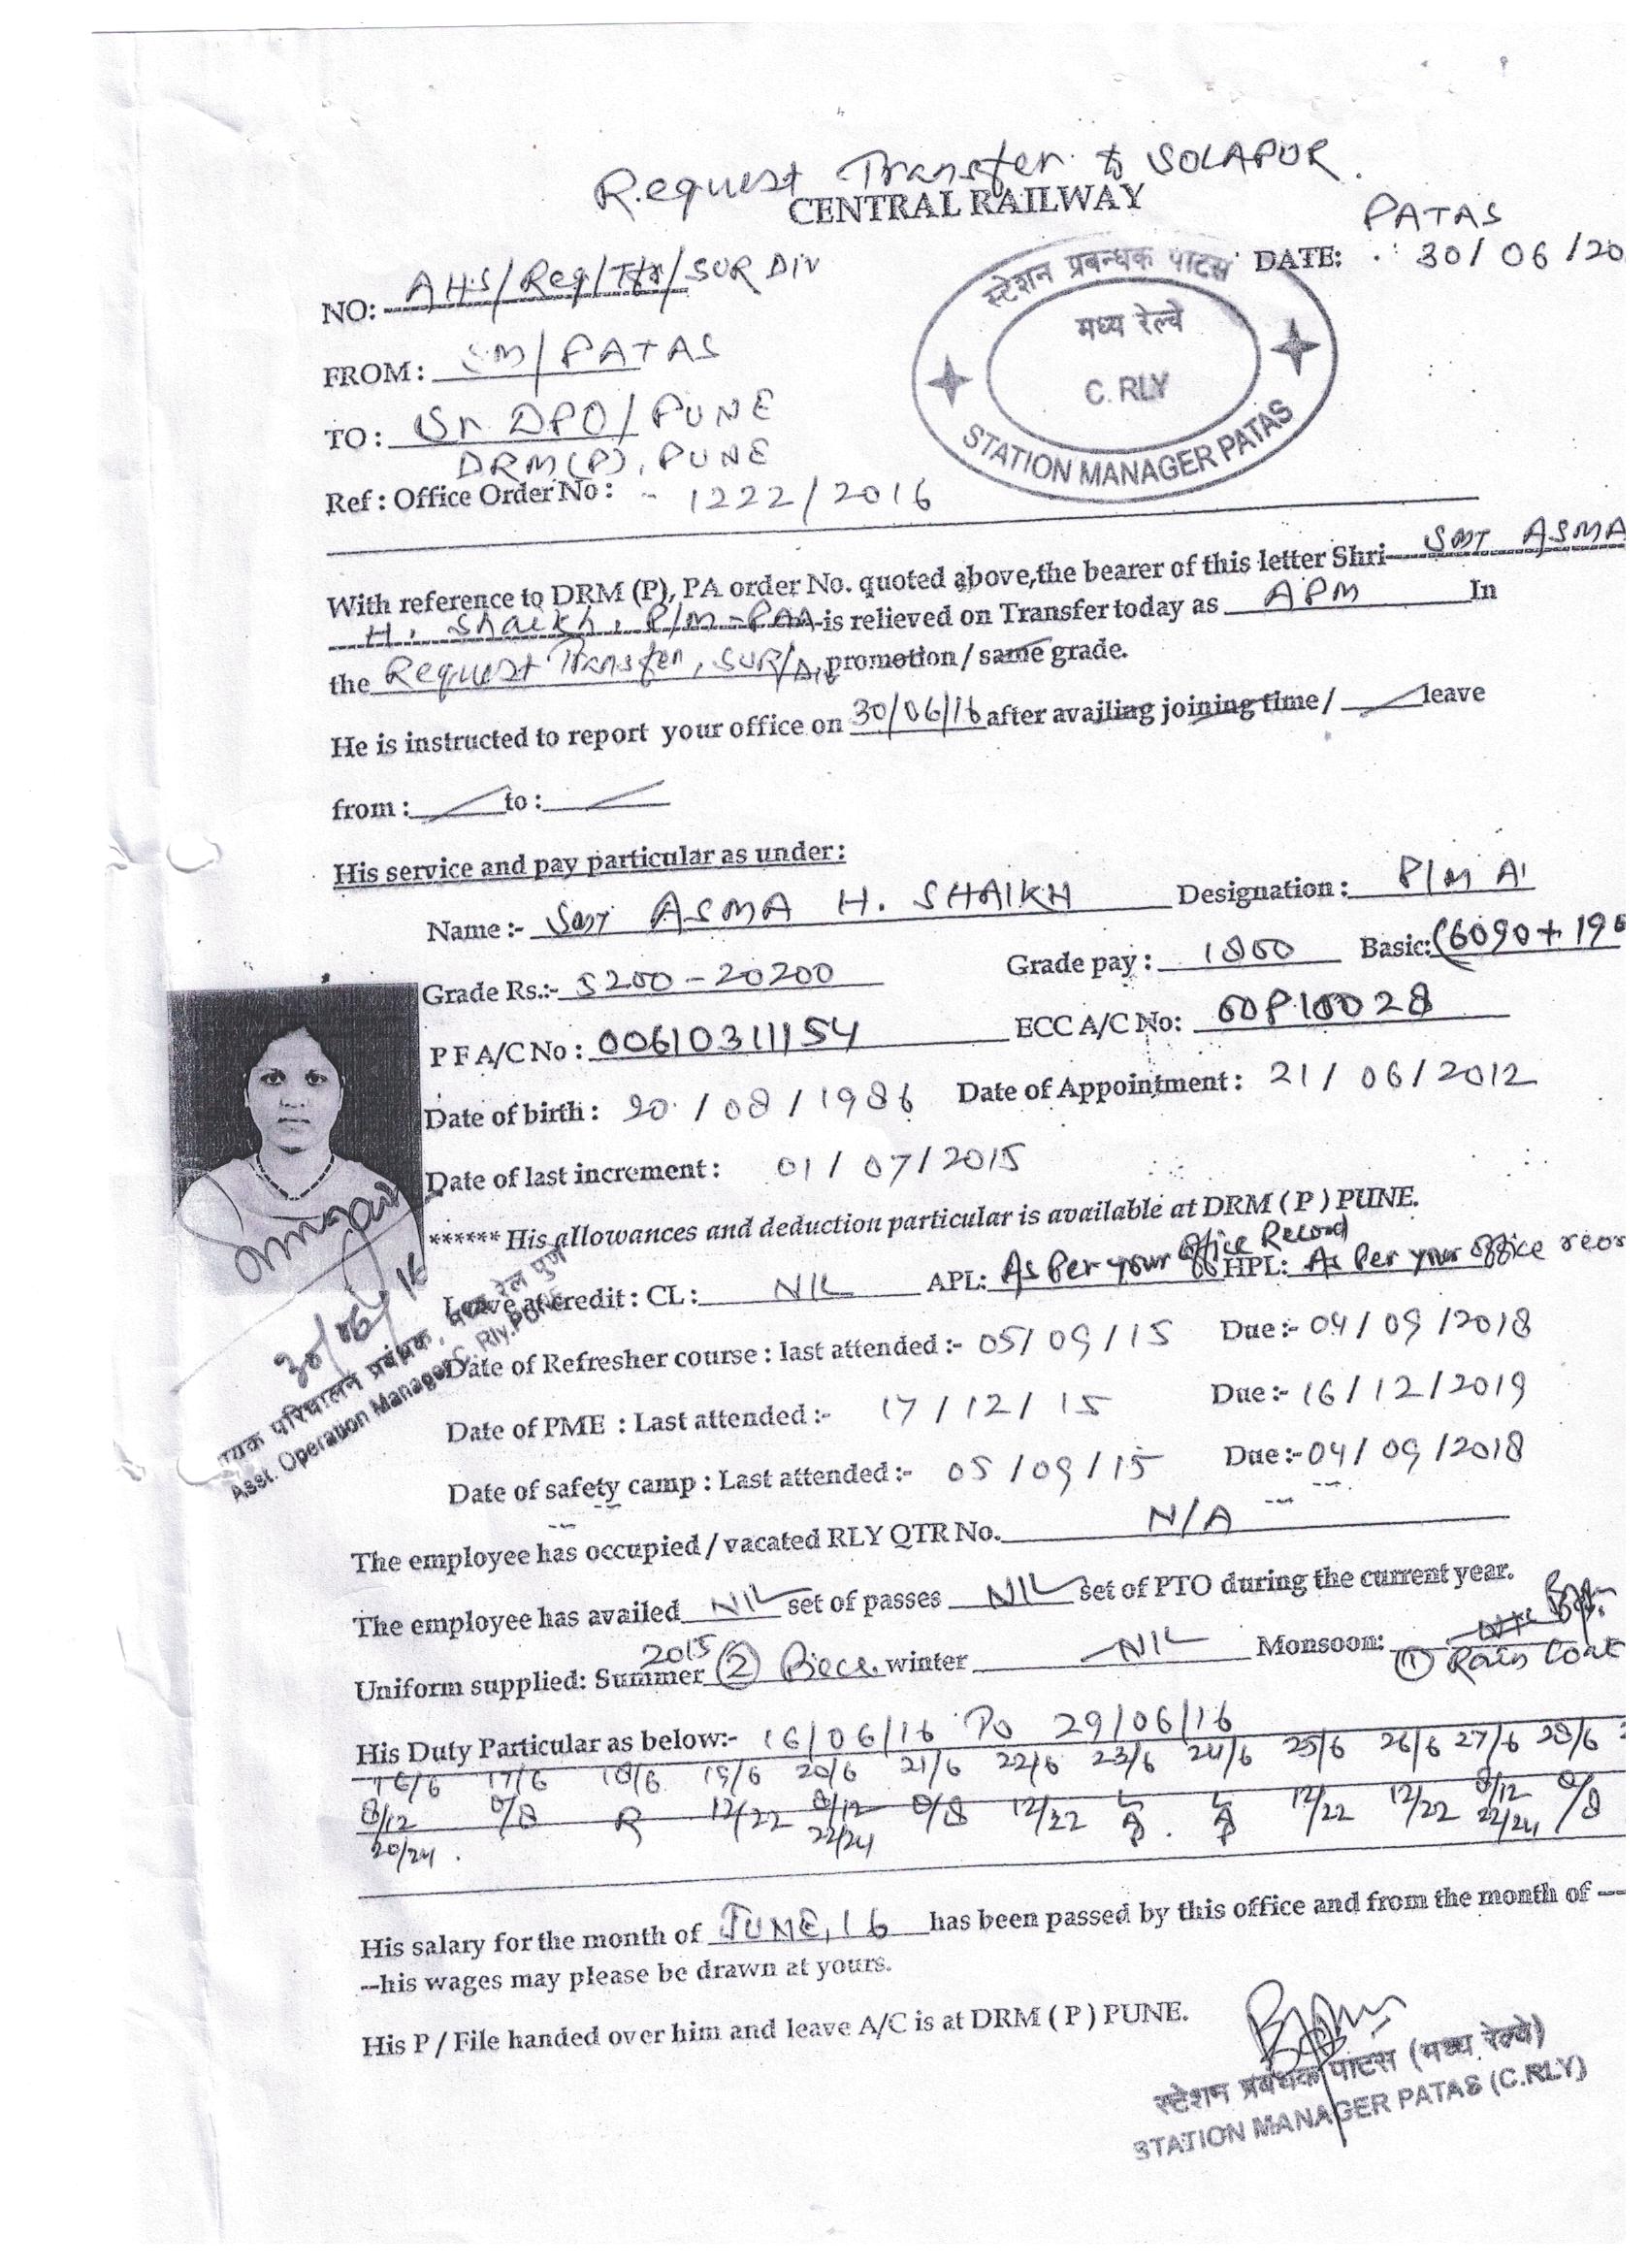 Request Transfer to SOLAPUR.
CENTRAL RAILWAY
PATAS
NO: AHS/Req/Tfr/SUR DIV
DATE: 30/06/20
स्टेशन प्रबन्धक पाटस
मध्य रेल्वे
C. RLY
STATION MANAGER PATAS
FROM: SM/PATAS
TO: Sr. DPO/PUNE
DRM(P), PUNE
Ref: Office Order No: - 1222/2016
With reference to DRM (P), PA order No. quoted above, the bearer of this letter Shri SMT ASMA
H. Shaikh. P/M-PAA is relieved on Transfer today as APM In
the Request Transfer, SUR/Div promotion / same grade.
He is instructed to report your office on 30/06/16 after availing joining time / leave
from: to:
His service and pay particular as under:
Name :- SMT ASMA H. SHAIKH Designation: P/M A'
Grade Rs.:- 5200-20200 Grade pay: 1800 Basic: (6090+190
P F A/C No: 00610311154 ECC A/C No: 00P10028
Date of birth: 20/08/1986 Date of Appointment: 21/06/2012
Date of last increment: 01/07/2015
****** His allowances and deduction particular is available at DRM ( P ) PUNE.
Leave at credit: CL: NIL APL: As Per your office Record HPL: As Per your office recor
Date of Refresher course: last attended :- 05/09/15 Due:- 04/09/2018
Date of PME : Last attended :- 17/12/15 Due:- 16/12/2019
Date of safety camp: Last attended :- 05/09/15 Due:- 04/09/2018
30/06/16
यक परिचालन प्रबंधक, मध्य रेल पुणे
Asst. Operation Manager C. Rly. PUNE
The employee has occupied / vacated RLY QTR No. N/A
The employee has availed NIL set of passes NIL set of PTO during the current year.
Uniform supplied: Summer 2015 (2) Piece. winter NIL Monsoon: (1) Rain Coat
His Duty Particular as below:- 16/06/16 To 29/06/16
16/6 17/6 18/6 19/6 20/6 21/6 22/6 23/6 24/6 25/6 26/6 27/6 28/6 2
8/12 0/8 R 12/22 8/12 0/8 12/22 12/22 12/22 8/12 0/8
20/24. 22/24 22/24
His salary for the month of JUNE, 16 has been passed by this office and from the month of ---
--his wages may please be drawn at yours.
His P / File handed over him and leave A/C is at DRM ( P ) PUNE.
स्टेशन प्रबंधक पाटस (मध्य रेल्वे)
STATION MANAGER PATAS (C.RLY)